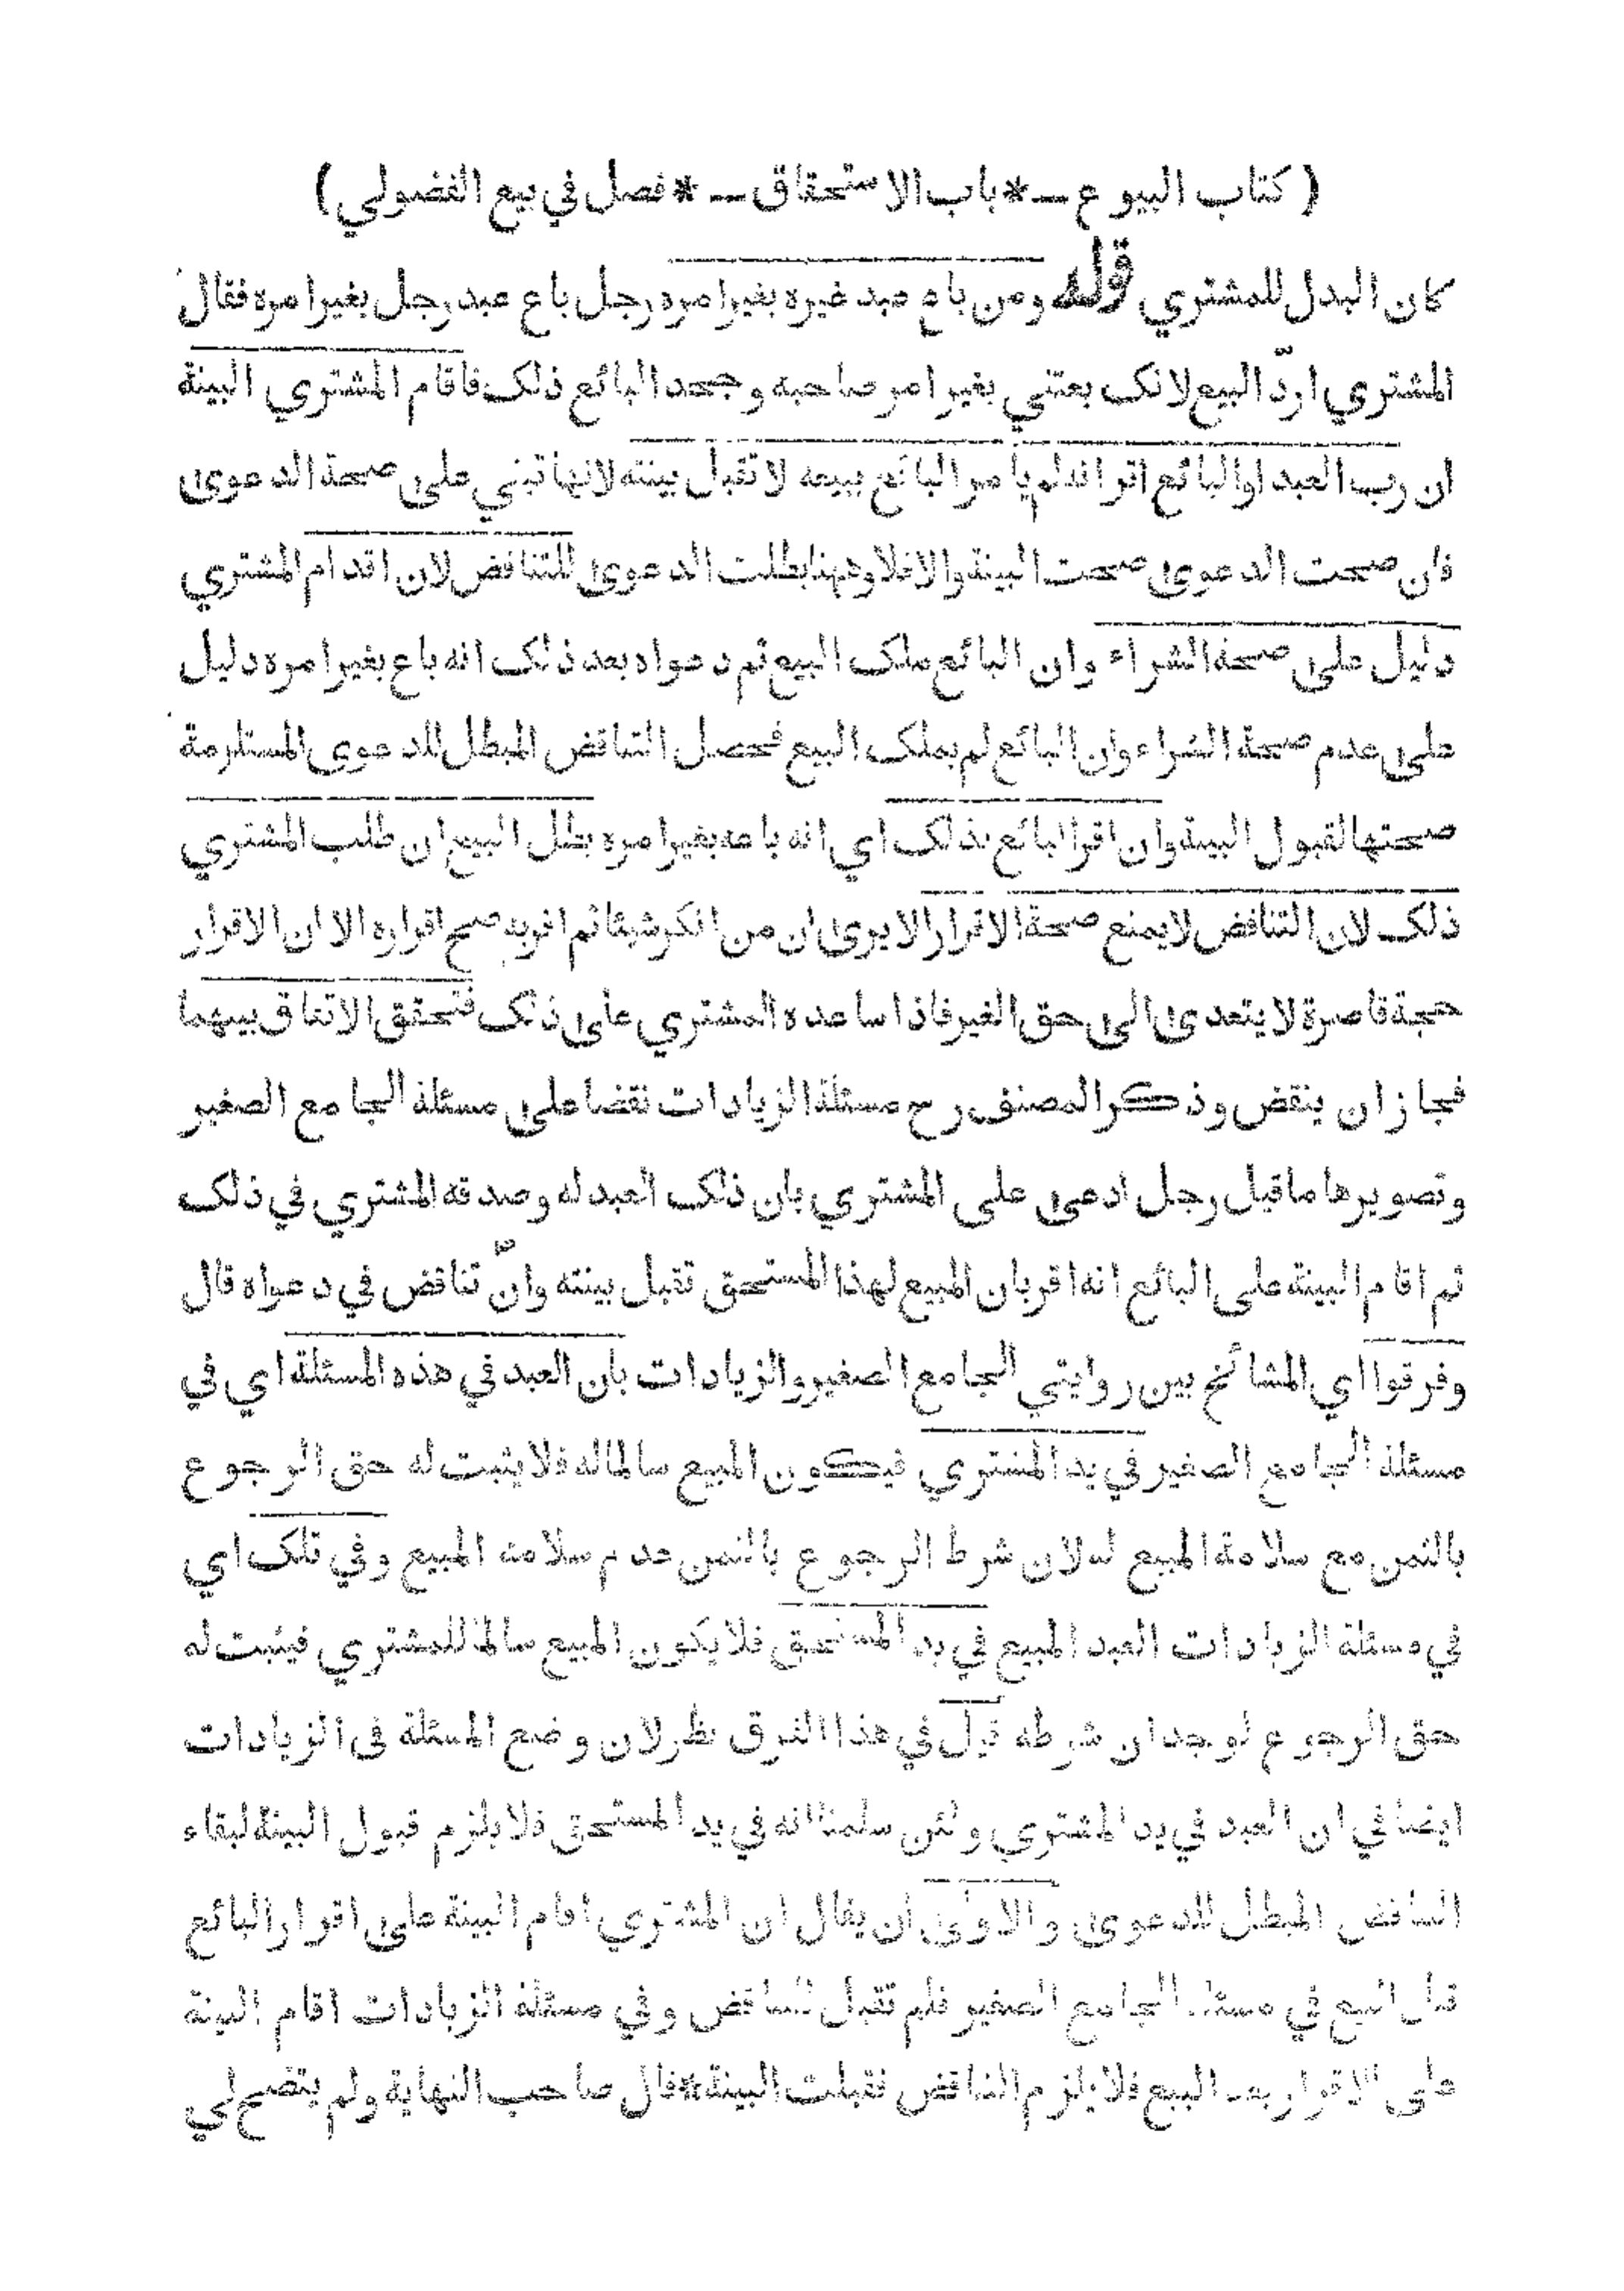 ( كتاب البيوع ـ * باب الاستحقاق ـ * فصل في بيع الفضولي )
كان البدل للمشتري قوله ومن باع عبد غيره بغير امره رجل باع عبد رجل بغير امره فقال
المشتري اردّ البيع لانك بعتني بغير امر صاحبه وجحد البائع ذلك فاقام المشتري البينة
ان رب العبد او البائع اقر انه لم يأمر البائع ببيعه لا تقبل بينته لانها تبني على صحة الدعوى
فان صحت الدعوى صحت البينة والا فلا وههنا بطلت الدعوى للتناقض لان اقدام المشتري
دليل على صحة الشراء وان البائع ملك البيع ثم دعواه بعد ذلك انه باع بغير امره دليل
على عدم صحة الشراء وان البائع لم يملك البيع فحصل التناقض المبطل للدعوى المستلزمة
صحتها لقبول البينة وان اقر البائع بذلك اي انه باعه بغير امره بطل البيع ان طلب المشتري
ذلك لان التناقض لا يمنع صحة الاقرار الا يرى ان من انكر شيئا ثم اقر به صح اقراره الا ان الاقرار
حجة قاصرة لا يتعدى الى حق الغير فاذا ساعده المشتري على ذلك فتحقق الاتفاق بينهما
فجاز ان ينقض وذكر المصنف رح مسئلة الزيادات نقضا على مسئلة الجامع الصغير
وتصويرها ما قيل رجل ادعى على المشتري بان ذلك العبد له وصدقه المشتري في ذلك
ثم اقام البينة على البائع انه اقر بان المبيع لهذا المستحق تقبل بينته وانّ تناقض في دعواه قال
وفرقوا اي المشائخ بين روايتي الجامع الصغير والزيادات بان العبد في هذه المسئلة اي في
مسئلة الجامع الصغير في يد المشتري فيكون المبيع سالما له فلا يثبت له حق الرجوع
بالثمن مع سلامة المبيع له لان شرط الرجوع بالثمن عدم سلامة المبيع وفي تلك اي
في مسئلة الزيادات العبد المبيع في يد المستحق فلا يكون المبيع سالما للمشتري فيثبت له
حق الرجوع لوجدان شرطه قيل في هذا الفرق نظر لان وضع المسئلة في الزيادات
ايضا في ان العبد في يد المشتري ولئن سلمنا انه في يد المستحق فلا يلزم قبول البينة لبقاء
التناقض المبطل للدعوى والاولى ان يقال ان المشتري اقام البينة على اقرار البائع
قبل البيع في مسئلة الجامع الصغير فلم تقبل للتناقض وفي مسئلة الزيادات اقام البينة
على الاقرار بعد البيع فلا يلزم التناقض فقبلت البينة * قال صاحب النهاية ولم يتضح لي